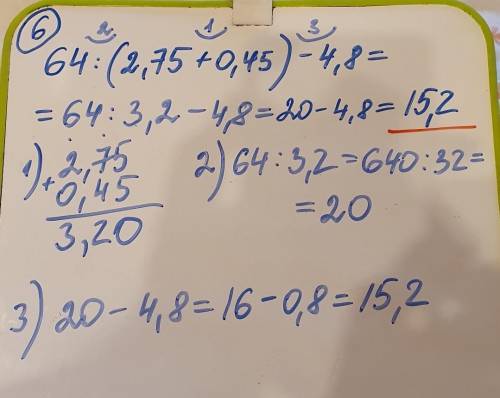 6
2 1 3
64 : (2,75 + 0,45) - 4,8 =
= 64 : 3,2 - 4,8 = 20 - 4,8 = 15,2
1) 2,75
+ 0,45
3,20
2) 64 : 3,2 = 640 : 32 =
= 20
3) 20 - 4,8 = 16 - 0,8 = 15,2